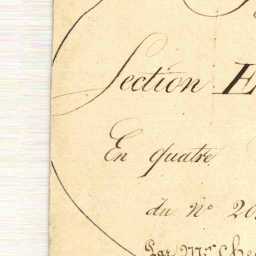 Section E
En quatre
du N° 20
Par Mr. Che